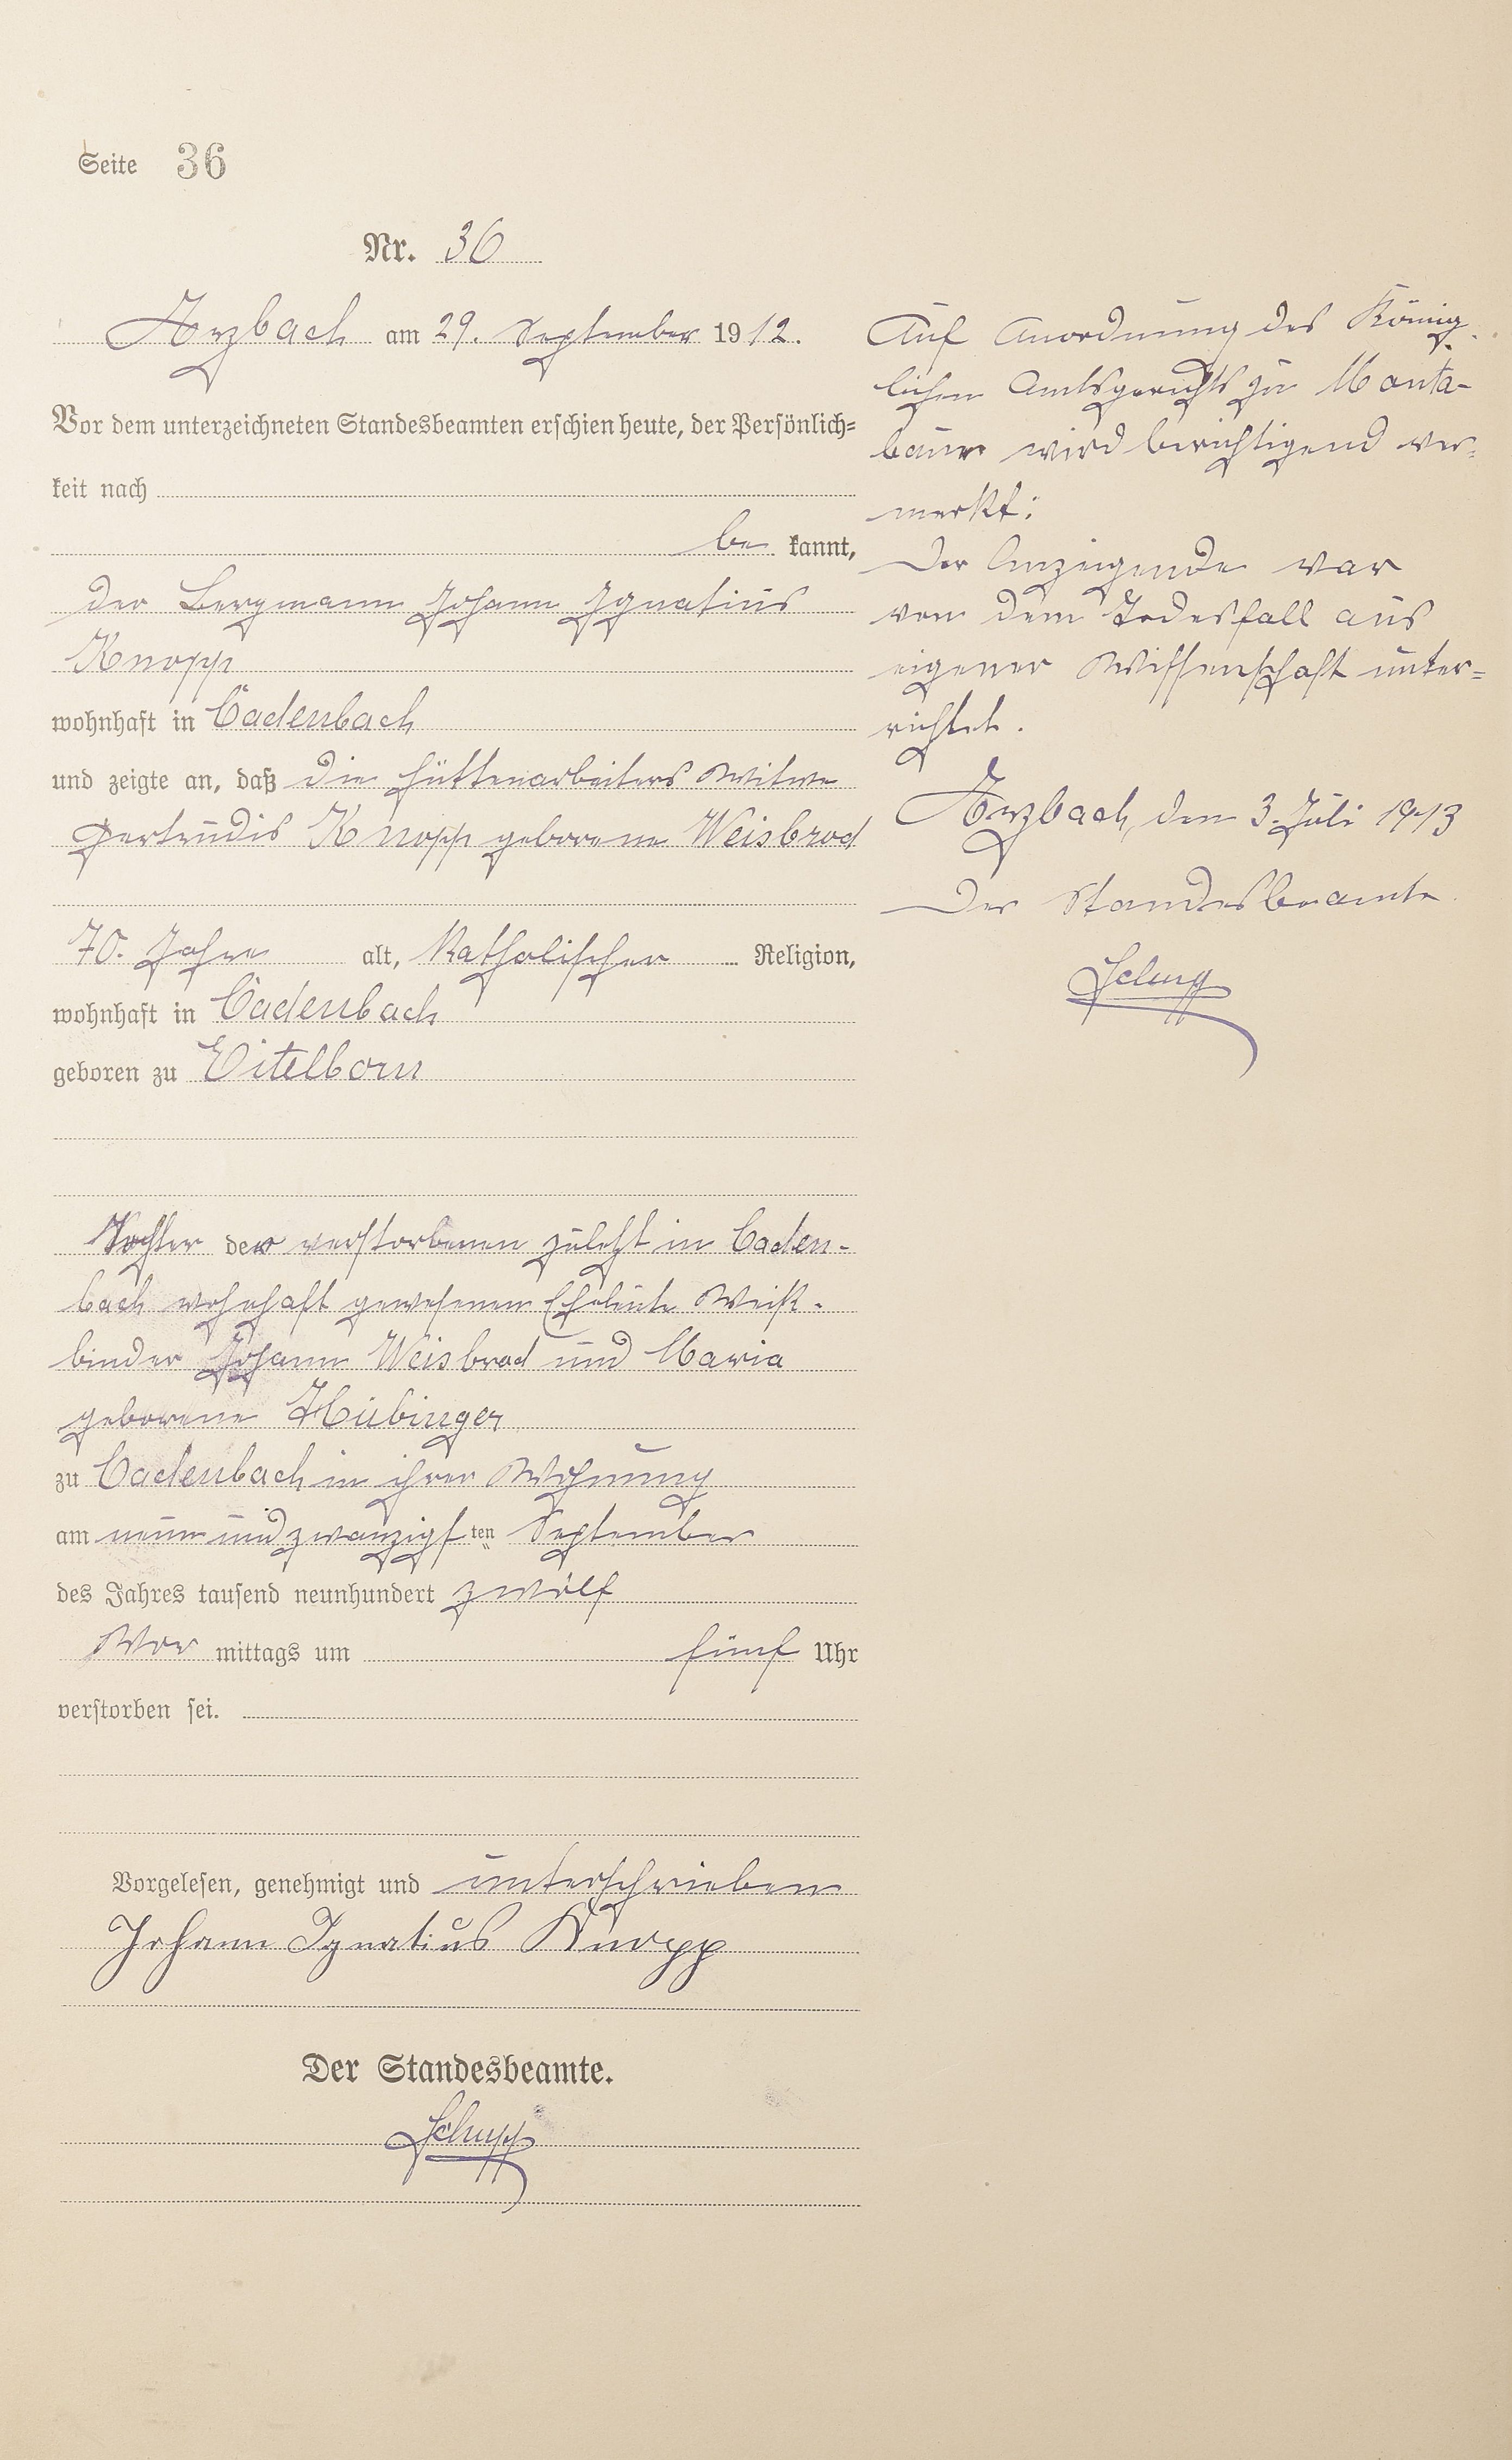 Seite 36
Nr. 36
Arzbach am 29. September 1912.
Vor dem unterzeichneten Standesbeamten erschien heute, der Persönlich=
keit nach
be kannt,
der Bergmann Johann Ignatius
Knopp
wohnhaft in Cadenbach
und zeigte an, daß die Hüttenarbeiters Witwe
Gertrudis Knopp geborene Weisbrod
70. Jahre alt, Katholischer Religion,
wohnhaft in Cadenbach
geboren zu Eitelborn
Tochter der verstorbenen zuletzt in Caden-
bach wohnhaft gewesenen Eheleute Weiß-
binder Johann Weisbrod und Maria
geborene Hübinger
zu Cadenbach in ihrer Wohnung
am neun und zwanzigsten September
des Jahres tausend neunhundert zwölf
Vor mittags um fünf Uhr
verstorben sei.
Vorgelesen, genehmigt und unterschrieben
Johann Ignatius Knopp
Der Standesbeamte.
Schupp
Auf Anordnung des König-
lichen Amtsgerichts zu Monta-
baur wird berichtigend ver-
merkt:
Der Anzeigende war
von dem Todesfall aus
eigener Wissenschaft unter=
richtet.
Arzbach, den 3. Juli 1913
Der Standesbeamte
Schupp